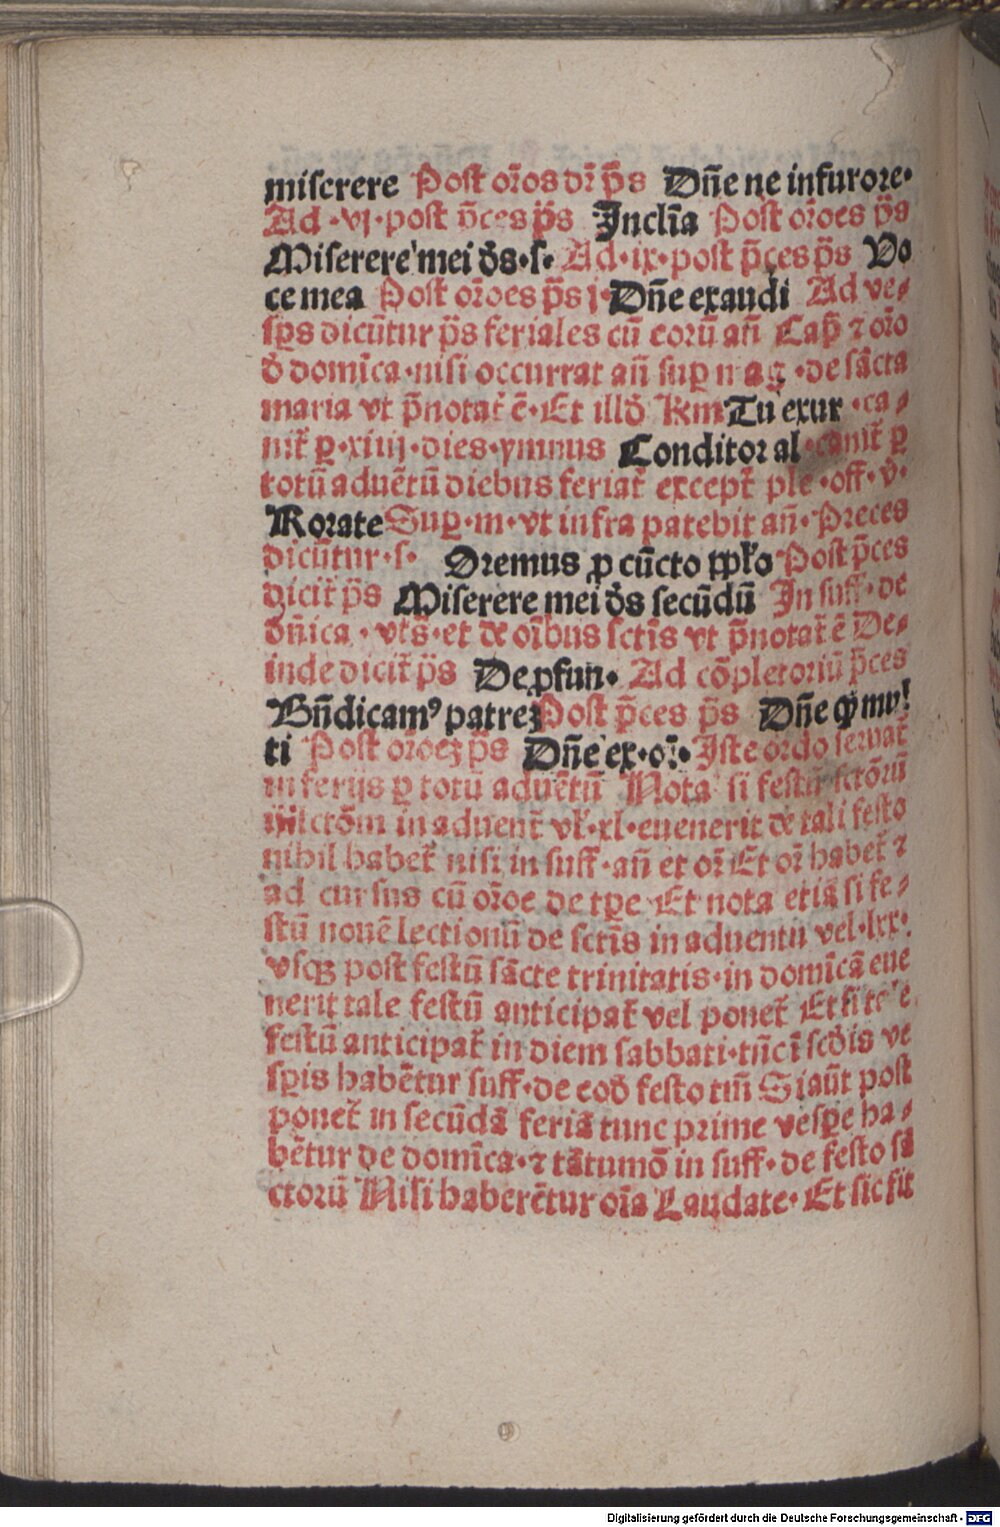 miserere Post or̄os dr̄ p̄s Dn̄e ne in furore·
Ad ·vj· post p̄ces p̄s Inclīa Post or̄oes p̄s
Miserere mei d̄s·s· Ad·ix·post p̄ces p̄s Vo
ce mea Post or̄oes p̄s j· Dn̄e exaudi Ad ve⸗
sp̄s dicūtur p̄s feriales cū eorū an̄ Cap̄ ⁊ or̄o
d̄ domīca·nisi occurrat an̄ sup̲ mag ·de sācta
maria vt p̄notat̄ ē·Et illd̄ Rm̄ Tu exur ·ca⸗
nit̄ ꝑ·xiiij·dies·ymnus Conditor al·canit̄ ꝑ
totū aduētū diebus feriat̄ except̄ ple·off·v̄·
Rorate Suꝑ·m·vt infra patebit an̄·Preces
dicūtur·s· Oremus ꝓ cūcto ppl̄o Post p̄ces
dicit̄ p̄s Miserere mei d̄s secūdū In suff·de
dn̄ica·vt s̄·et de oībus sctīs vt p̄notat̄ ē De⸗
inde dicit̄ p̄s De ꝓfun· Ad cōpletoriū p̄ces
Bn̄dicamꝰ patreꝫ Post p̄ces p̄s Dn̄e qͥ mul
ti Post or̄oeꝫ p̄s Dn̄e ex·or̄· Iste ordo seruat̄
in ferijs ꝑ totū aduētū Nota si festū sctōrū
iij lctōm in aduent̄ vl̄·xl·euenerit de tali festo
nihil habet̄ nisi in suff·an̄ et or̄ Et or̄ habet̄ ⁊
ad cursus cū or̄oe de tꝑe Et nota etiā si fe⸗
stū nouē lectionū de sctīs in aduentu vel·lxx·
vsqꝫ post festū sācte trinitatis·in domīcā eue
nerit tale festū anticipat̄ vel ponet̄ Et si
festū anticipat̄ in diem sabbati·tūc ī scd̄is ve
sꝑis habētur suff·de eod̄ festo tm̄ Si aūt post
ponet̄ in secūdā feriā tunc prime vesꝑe ha⸗
bētur de domīca·⁊ tātūmō in suff·de festo sā
ctorū Nisi haberētur oīa Laudate·Et sic fit
Digitalisierung gefördert durch die Deutsche Forschungsgemeinschaft - DFG